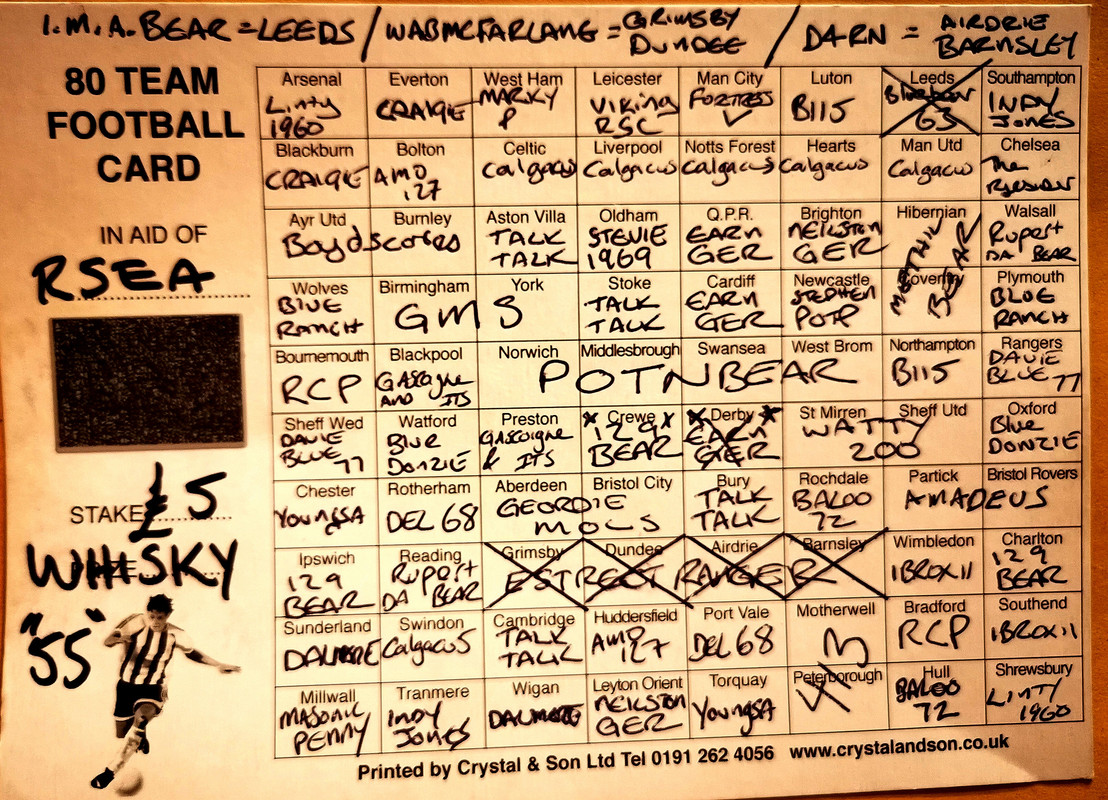 I.M.A.BEAR = LEEDS / WABMCFARLANE = GRIMSBY DUNDEE / D4RN = AIRDRIE BARNSLEY
80 TEAM
FOOTBALL
CARD
IN AID OF
RSEA
STAKE £5
WHISKY
"55"
Arsenal Everton West Ham Leicester Man City Luton Leeds Southampton
Linty 1960 CRAIGIE MARKY P VIKING RSC FORTRESS B115 63 INDY JONES
Blackburn Bolton Celtic Liverpool Notts Forest Hearts Man Utd Chelsea
CRAIGIE AMO 127 Calgacus Calgacus Calgacus Calgacus Calgacus The
Ayr Utd Burnley Aston Villa Oldham Q.P.R. Brighton Hibernian Walsall
Boydscores TALK TALK STEVIE 1969 EARN GER NEILSTON GER METHIL BEAR Rupert DA BEAR
Wolves Birmingham York Stoke Cardiff Newcastle Coventry Plymouth
BLUE RANCH GMS TALK TALK EARN GER STEPHEN POTP BLUE RANCH
Bournemouth Blackpool Norwich Middlesbrough Swansea West Brom Northampton Rangers
RCP GASCOIGNE AND ITS POTNBEAR B115 DAVIE BLUE 77
Sheff Wed Watford Preston x Crewe x x Derby x St Mirren Sheff Utd Oxford
DAVIE BLUE 77 BLUE DONZIE GASCOIGNE & ITS 129 BEAR EARN GER WATTY 200 Blue DONZIE
Chester Rotherham Aberdeen Bristol City Bury Rochdale Partick Bristol Rovers
YOUNGSA DEL 68 GEORDIE MOLS TALK TALK BALOO 72 AMADEUS
Ipswich Reading Grimsby Dundee Airdrie Barnsley Wimbledon Charlton
129 BEAR RUPERT DA BEAR ESTREET RANGER IBROX11 129 BEAR
Sunderland Swindon Cambridge Huddersfield Port Vale Motherwell Bradford Southend
DALMORE Calgacus TALK TALK AMO 127 DEL 68 RCP IBROX11
Millwall Tranmere Wigan Leyton Orient Torquay Peterborough Hull Shrewsbury
MASONIC PENNY INDY JONES DALMORE NEILSTON GER YOUNGSA BALOO 72 LINTY 1960
Printed by Crystal & Son Ltd Tel 0191 262 4056 www.crystalandson.co.uk